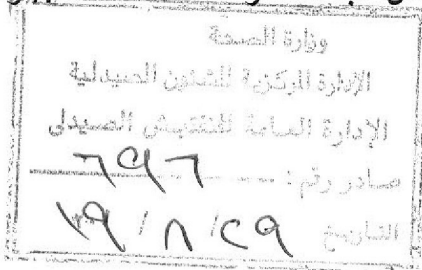 وزارة الصحة
الإدارة المركزية للشئون الصيدلية
الإدارة العامة للتفتيش الصيدلى
صادر رقم : ٦٩٦
التاريخ ٢٩ / ٨ / ١٩